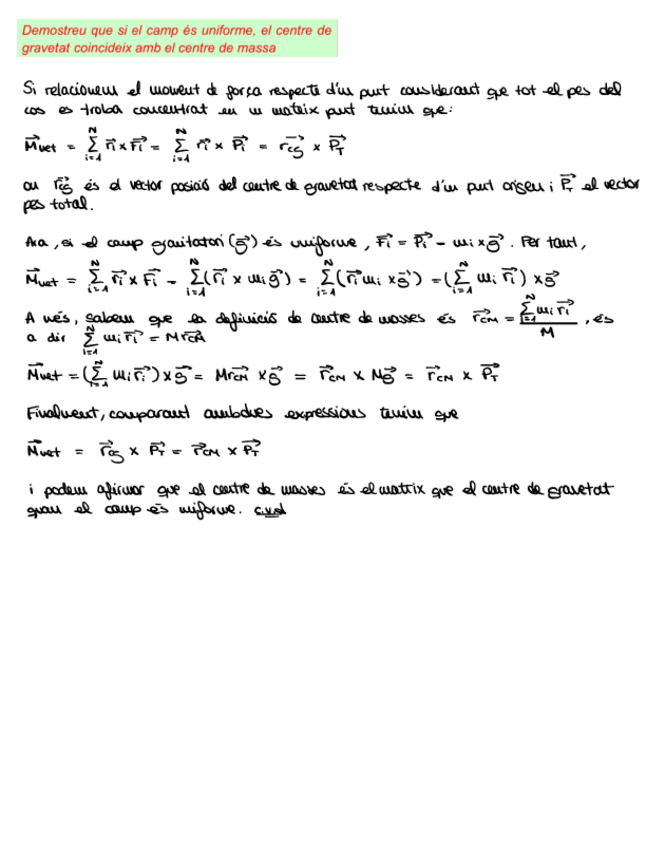 Demostreu que si el camp és uniforme, el centre de
gravetat coincideix amb el centre de massa
Si relacionem el moment de força respecte d'un punt considerant que tot el pes del
cos es troba concentrat en un mateix punt tenim que:
M⃗net = Σ_{i=1}^{N} r⃗i × F⃗i = Σ_{i=1}^{N} r⃗i × P⃗i = r⃗cg × P⃗T
on r⃗cg és el vector posició del centre de gravetat respecte d'un punt origen i P⃗T el vector
pes total.
Ara, si el camp gravitatori (g⃗) és uniforme, F⃗i = P⃗i = mi × g⃗. Per tant,
M⃗net = Σ_{i=1}^{N} r⃗i × F⃗i = Σ_{i=1}^{N} (r⃗i × mi g⃗) = Σ_{i=1}^{N} (r⃗i mi × g⃗) = (Σ_{i=1}^{N} mi r⃗i) × g⃗
A més, sabem que la definició de centre de masses és r⃗CM = Σ_{i=1}^{N} mi r⃗i / M, és
a dir Σ_{i=1}^{N} mi r⃗i = M r⃗CM
M⃗net = (Σ_{i=1}^{N} mi r⃗i) × g⃗ = M r⃗CM × g⃗ = r⃗CM × M g⃗ = r⃗CM × P⃗T
Finalment, comparant ambdues expressions tenim que
M⃗net = r⃗cg × P⃗T = r⃗CM × P⃗T
i podem afirmar que el centre de masses és el matrix que el centre de gravetat
quan el camp és uniforme. c.v.d